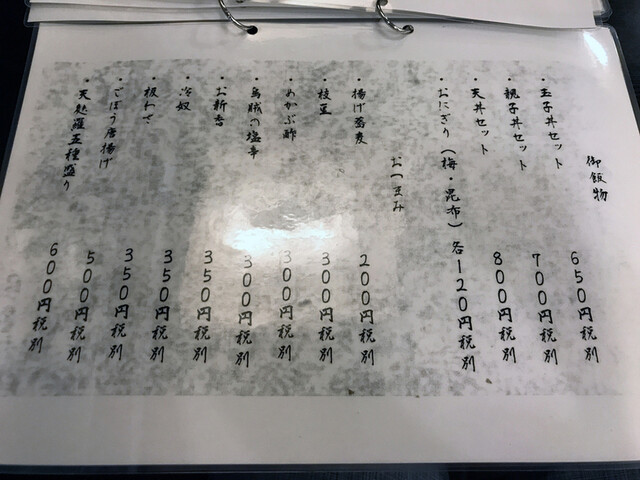 御飯物
・玉子丼セット 650円税別
・親子丼セット 700円税別
・天丼セット 800円税別
・おにぎり(梅・昆布)各120円税別
おつまみ
・揚げ蕎麦 200円税別
・枝豆 300円税別
・めかぶ酢 300円税別
・烏賊の塩辛 300円税別
・お新香 350円税別
・冷奴 350円税別
・板わさ 350円税別
・ごぼう唐揚げ 500円税別
・天麩羅五種盛り 600円税別